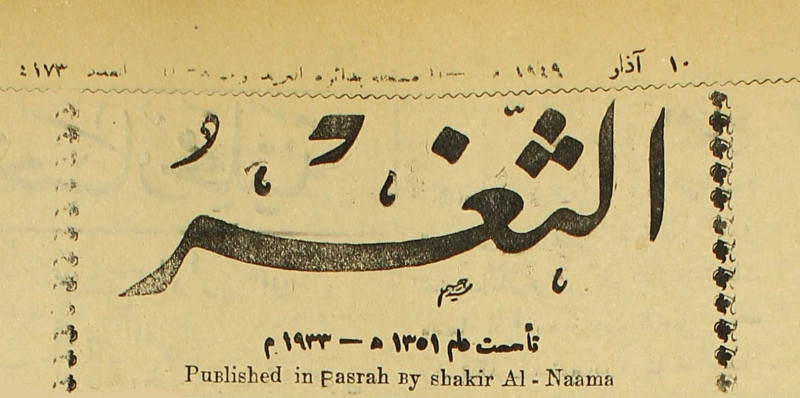 ١٠ آذار ١٩٤٩ م العدد ٤١٧٣
الثغر
تأسست عام ١٣٥١ ه — ١٩٣٣ م
Published in Basrah By shakir Al - Naama